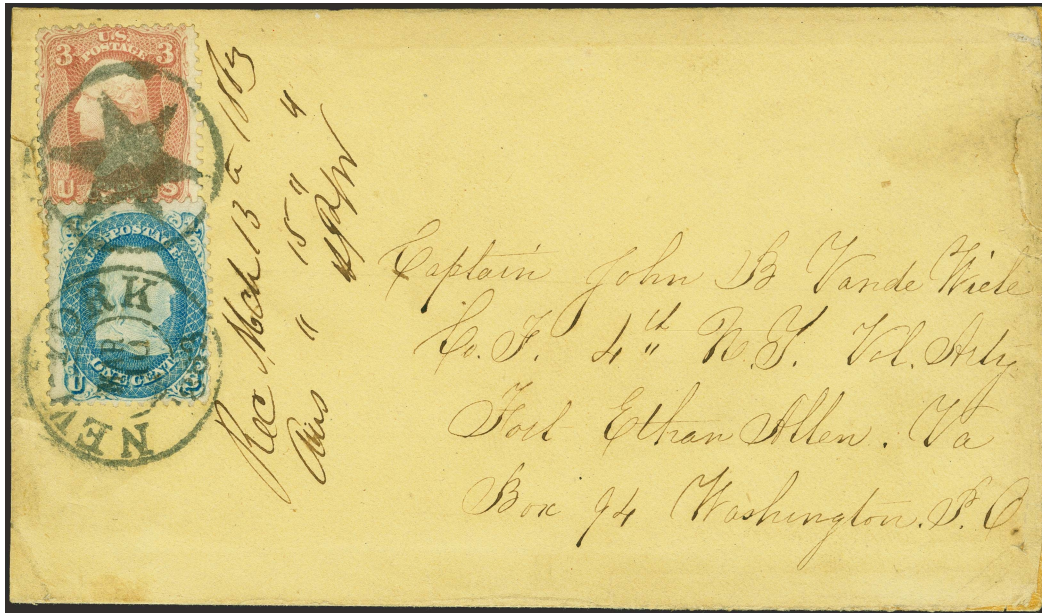 3 U.S. 3
POSTAGE
U S
U.S. POSTAGE
ONE CENT
U S
NEW YORK
Rec Mch 13 1863
Ans " 15 " "
Captain John B Vande Wiele
Co. F. 4th N.Y. Vol. Arty
Fort Ethan Allen. Va
Box 94 Washington. D. C